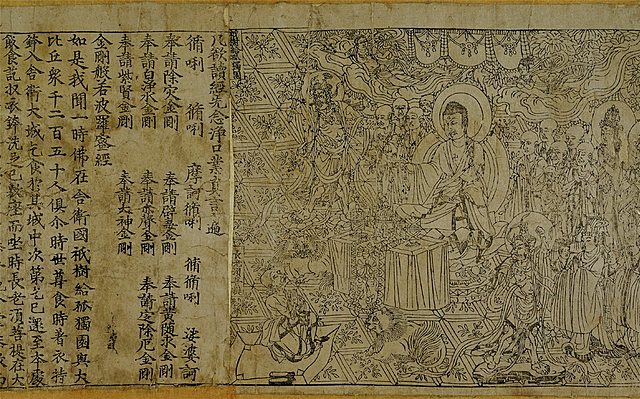 凡欲讀經先念淨口業真言一遍
脩唎 脩唎 摩訶脩唎 脩脩唎 娑婆訶
奉請除災金剛 奉請辟毒金剛 奉請黃隨求金剛
奉請白淨水金剛 奉請赤聲金剛 奉請定除厄金剛
奉請紫賢金剛 奉請大神金剛
金剛般若波羅蜜經
如是我聞一時佛在舍衛國祇樹給孤獨園與大
比丘眾千二百五十人俱尒時世尊食時著衣持
鉢入舍衛大城乞食於其城中次第乞已還至本處
飯食訖收衣鉢洗足已敷座而坐時長老須菩提在大